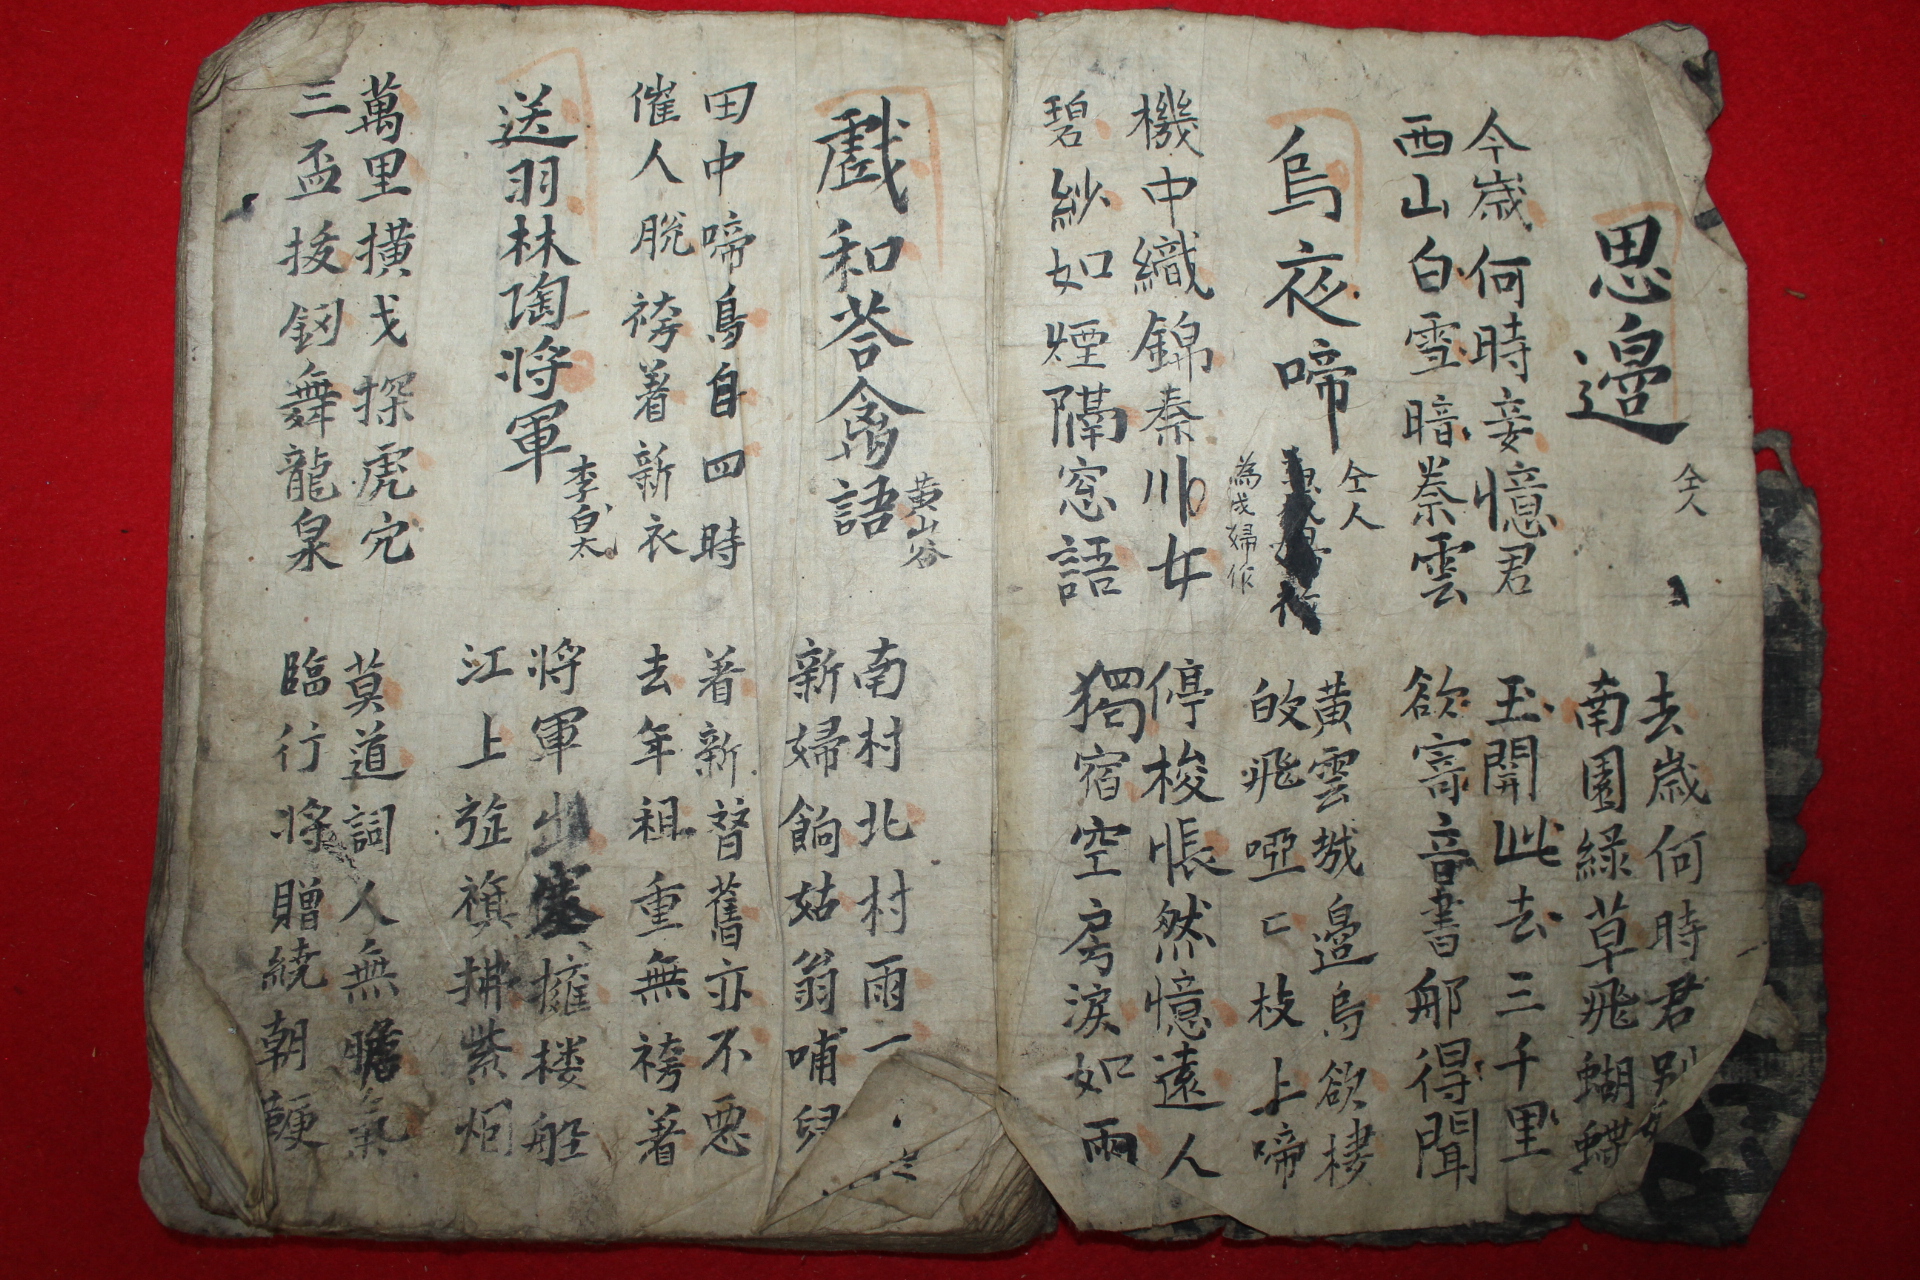 思邊
仝人
去歲何時君別妾
南園綠草飛蝴蝶
今歲何時妾憶君
西山白雪暗秦雲
玉開此去三千里
欲寄音書那得聞
烏夜啼
仝人
為戍婦作
黃雲城邊烏欲棲
皈飛啞匕枝上啼
機中織錦秦川女
碧紗如煙隔窓語
停梭悵然憶遠人
獨宿空房淚如雨
戱和荅禽語
黃山谷
南村北村雨一
新婦餉姑翁哺兒
田中啼鳥自四時
催人脫袴着新衣
着新替舊亦不惡
去年租重無袴着
送羽林陶將軍
李太白
將軍出塞擁楼舡
江上旌旗拂紫烟
萬里橫戈探虎穴
三盃拔釼舞龍泉
莫道詞人無膽氣
臨行將贈繞朝鞭